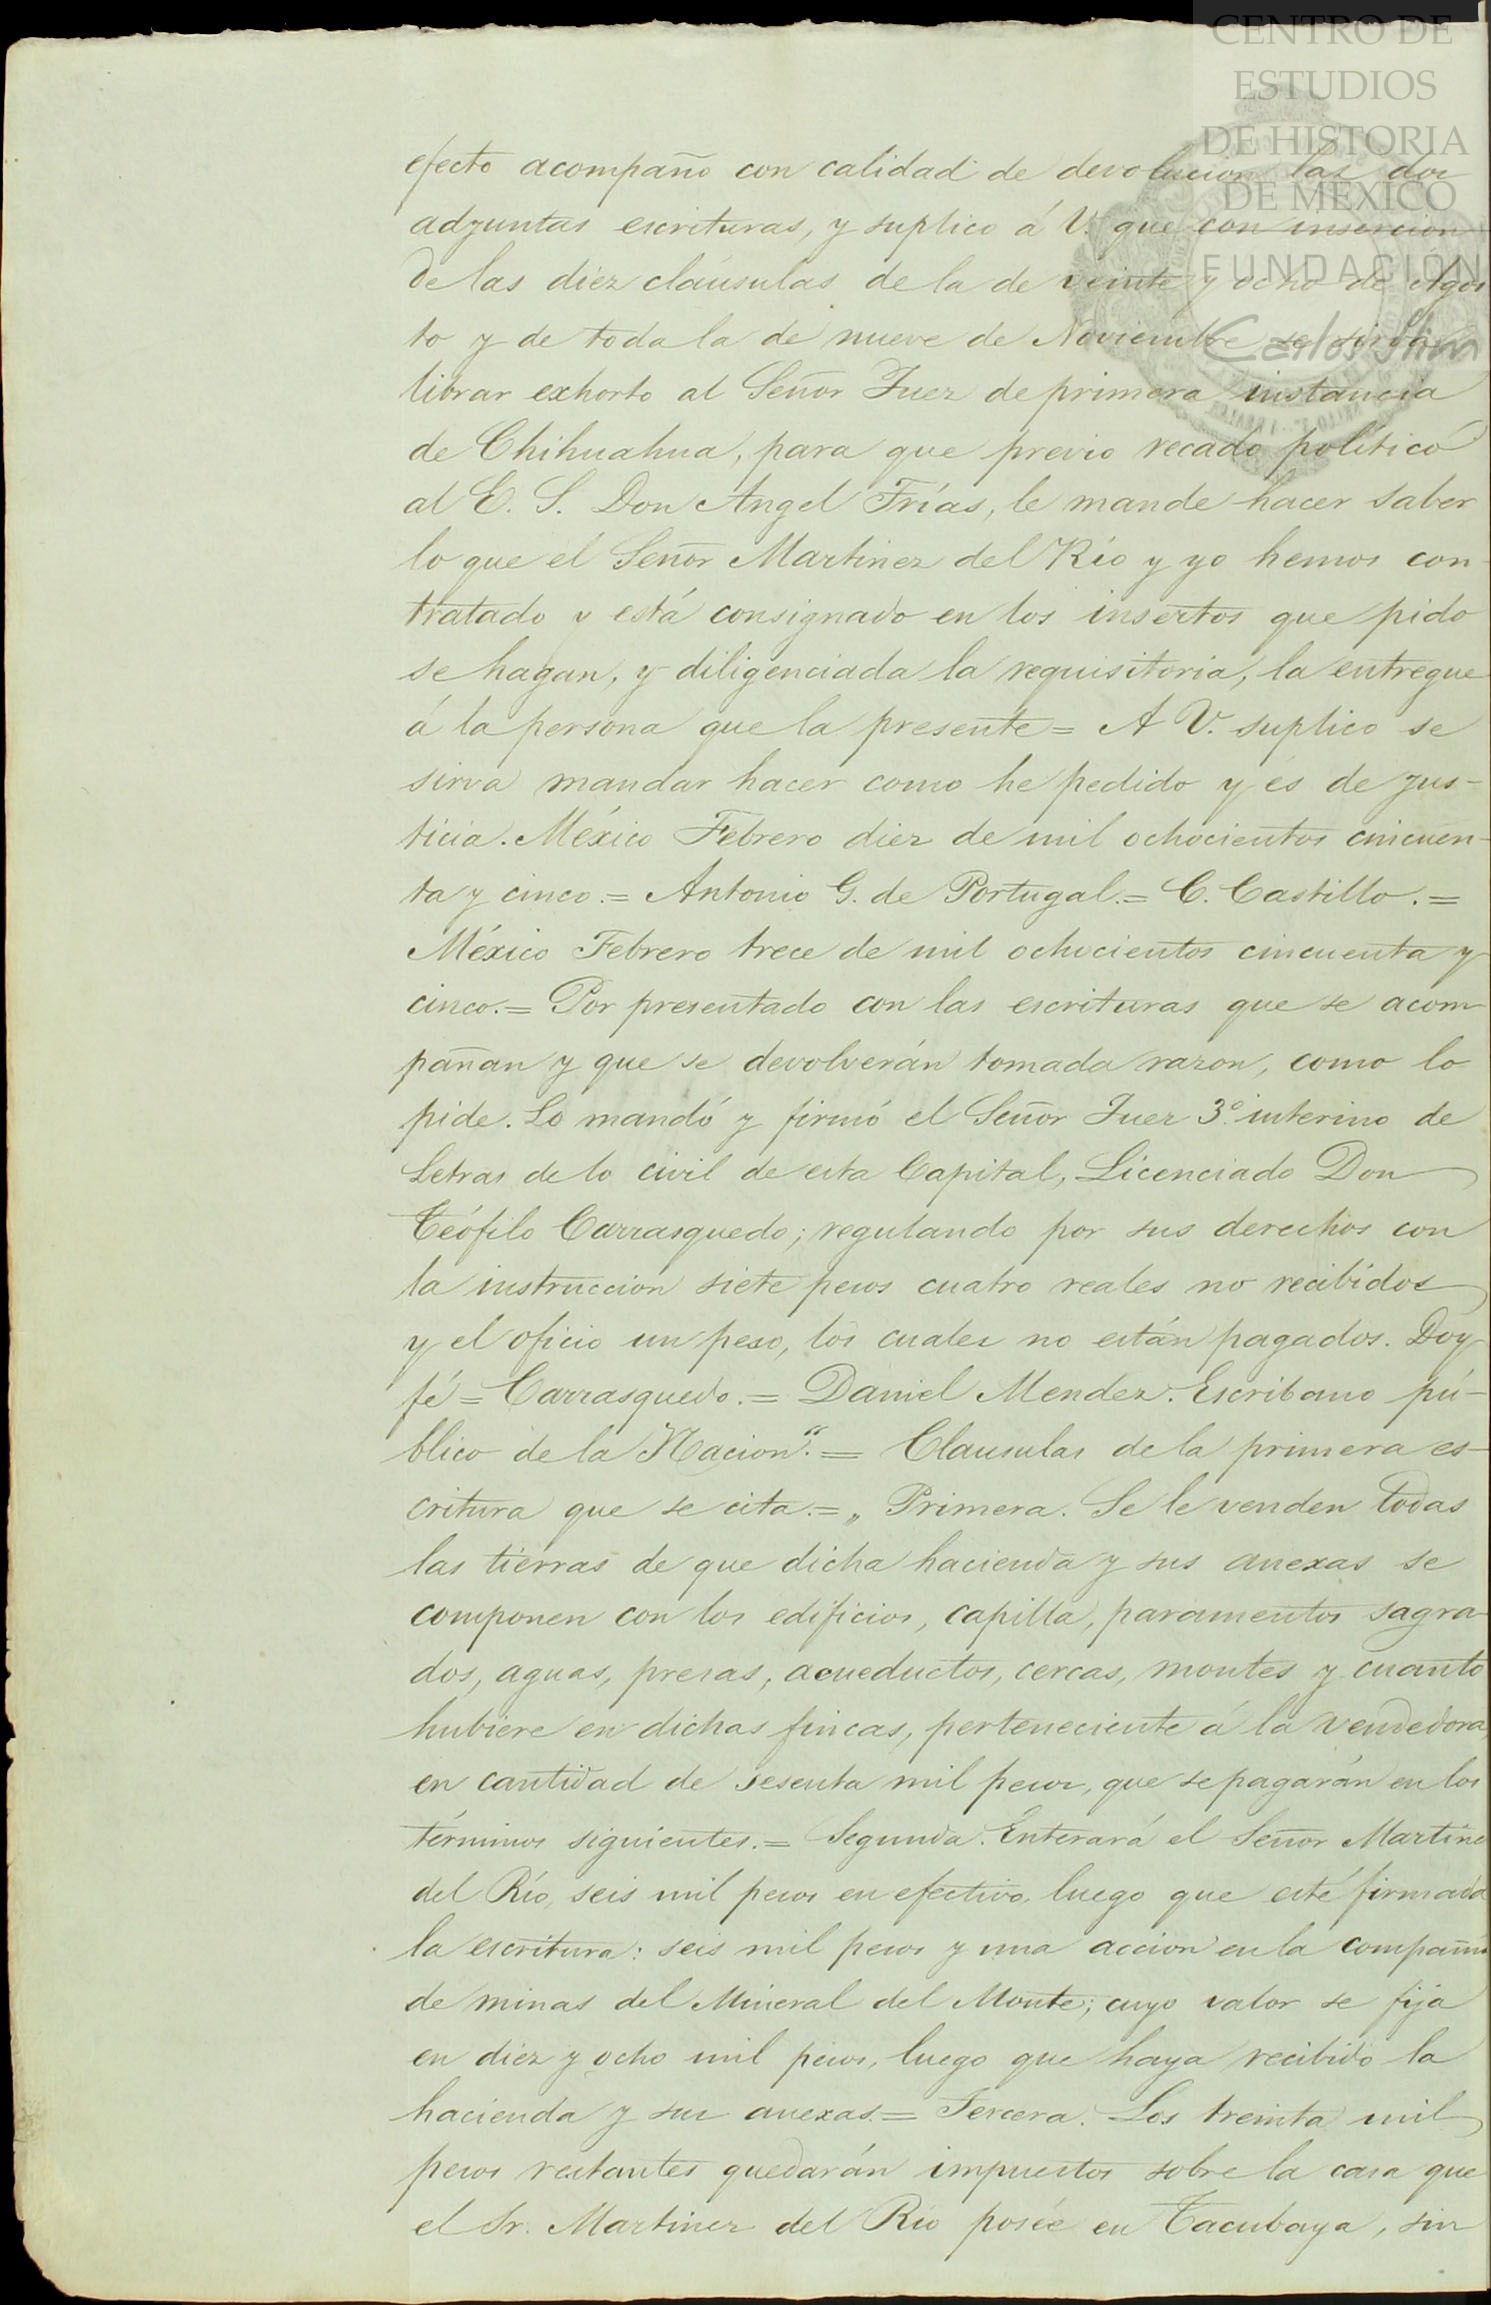 CENTRO DE
ESTUDIOS
DE HISTORIA
DE MÉXICO
FUNDACIÓN
Carlos Slim
efecto acompaño con calidad de devolucion las dos
adjuntas escrituras, y suplico á V. que con insercion
de las diez cláusulas de la de veinte y ocho de Agos
to y de toda la de nueve de Noviembre se sirva
librar exhorto al Señor Juez de primera instancia
de Chihuahua, para que previo recado político
al E. S. Don Angel Frías, le mande hacer saber
lo que el Señor Martinez del Río y yo hemos con-
tratado y está consignado en los insertos que pido
se hagan, y diligenciada la requisitoria, la entregue
á la persona que la presente = A V. suplico se
sirva mandar hacer como he pedido y és de jus-
ticia. México Febrero diez de mil ochocientos cincuen-
ta y cinco. = Antonio G. de Portugal. = C. Castillo. =
México Febrero trece de mil ochocientos cincuenta y
cinco. = Por presentado con las escrituras que se acom-
pañan y que se devolverán tomada razon, como lo
pide. Lo mandó y firmó el Señor Juez 3º interino de
Letras de lo civil de esta Capital, Licenciado Don
Teófilo Carrasquedo; regulando por sus derechos con
la instruccion siete pesos cuatro reales no recibidos
y el oficio un peso, los cuales no están pagados. Doy
fé = Carrasquedo. = Daniel Mendez. Escribano pú-
blico de la Nacion". = Clausulas de la primera es-
critura que se cita. = „ Primera. Se le venden todas
las tierras de que dicha hacienda y sus anexas se
componen con los edificios, capilla, paramentos sagra-
dos, aguas, presas, acueductos, cercas, montes y cuanto
hubiere en dichas fincas, perteneciente á la vendedora,
en cantidad de sesenta mil pesos, que se pagarán en los
términos siguientes. = Segunda. Enterará el Señor Martine
del Río, seis mil pesos en efectivo, luego que esté firmada
la escritura: seis mil pesos y una accion en la compañia
de minas del Mineral del Monte; cuyo valor se fija
en diez y ocho mil pesos, luego que haya recibido la
hacienda y sus anexas = Tercera. Los treinta mil
pesos restantes quedarán impuestos sobre la casa que
el Sr. Martinez del Rio posée en Tacubaya, sin